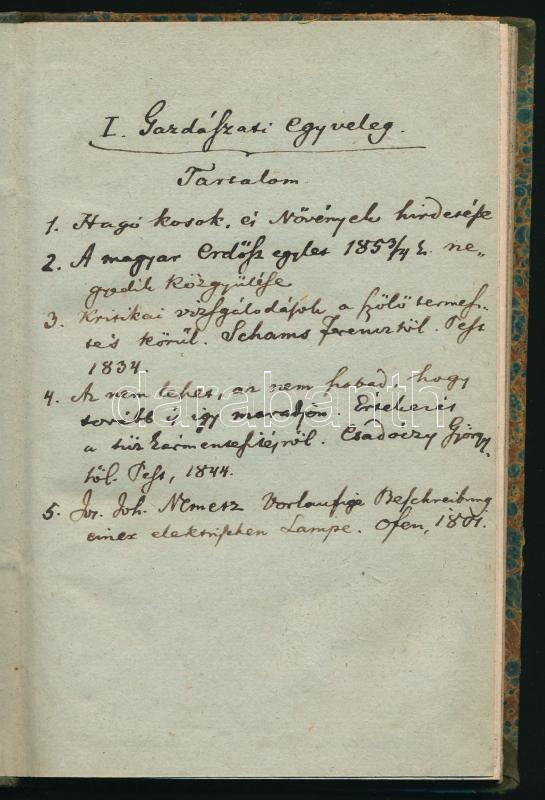 I. Gazdászati egyveleg.
Tartalom
1. Hagó kosok, és Növények hirdetése
2. A magyar Erdősz egylet 1853/4 É. ne-
gyedik közgyűlése
3. Kritikai vizsgálodások a szőlő termesz-
tés körűl. Schams Ferencztől. Pest
1834
4. Az nem lehet, az nem szabad, hogy
tovább is így maradjon. Értekezés
a tűz kármentesítésről. Csadóczy György-
től. Pest, 1844.
5. Jos. Joh. Nemetz Vorlaufige Beschreibung
einer elektrischen Lampe. Ofen, 1801.
darabanth